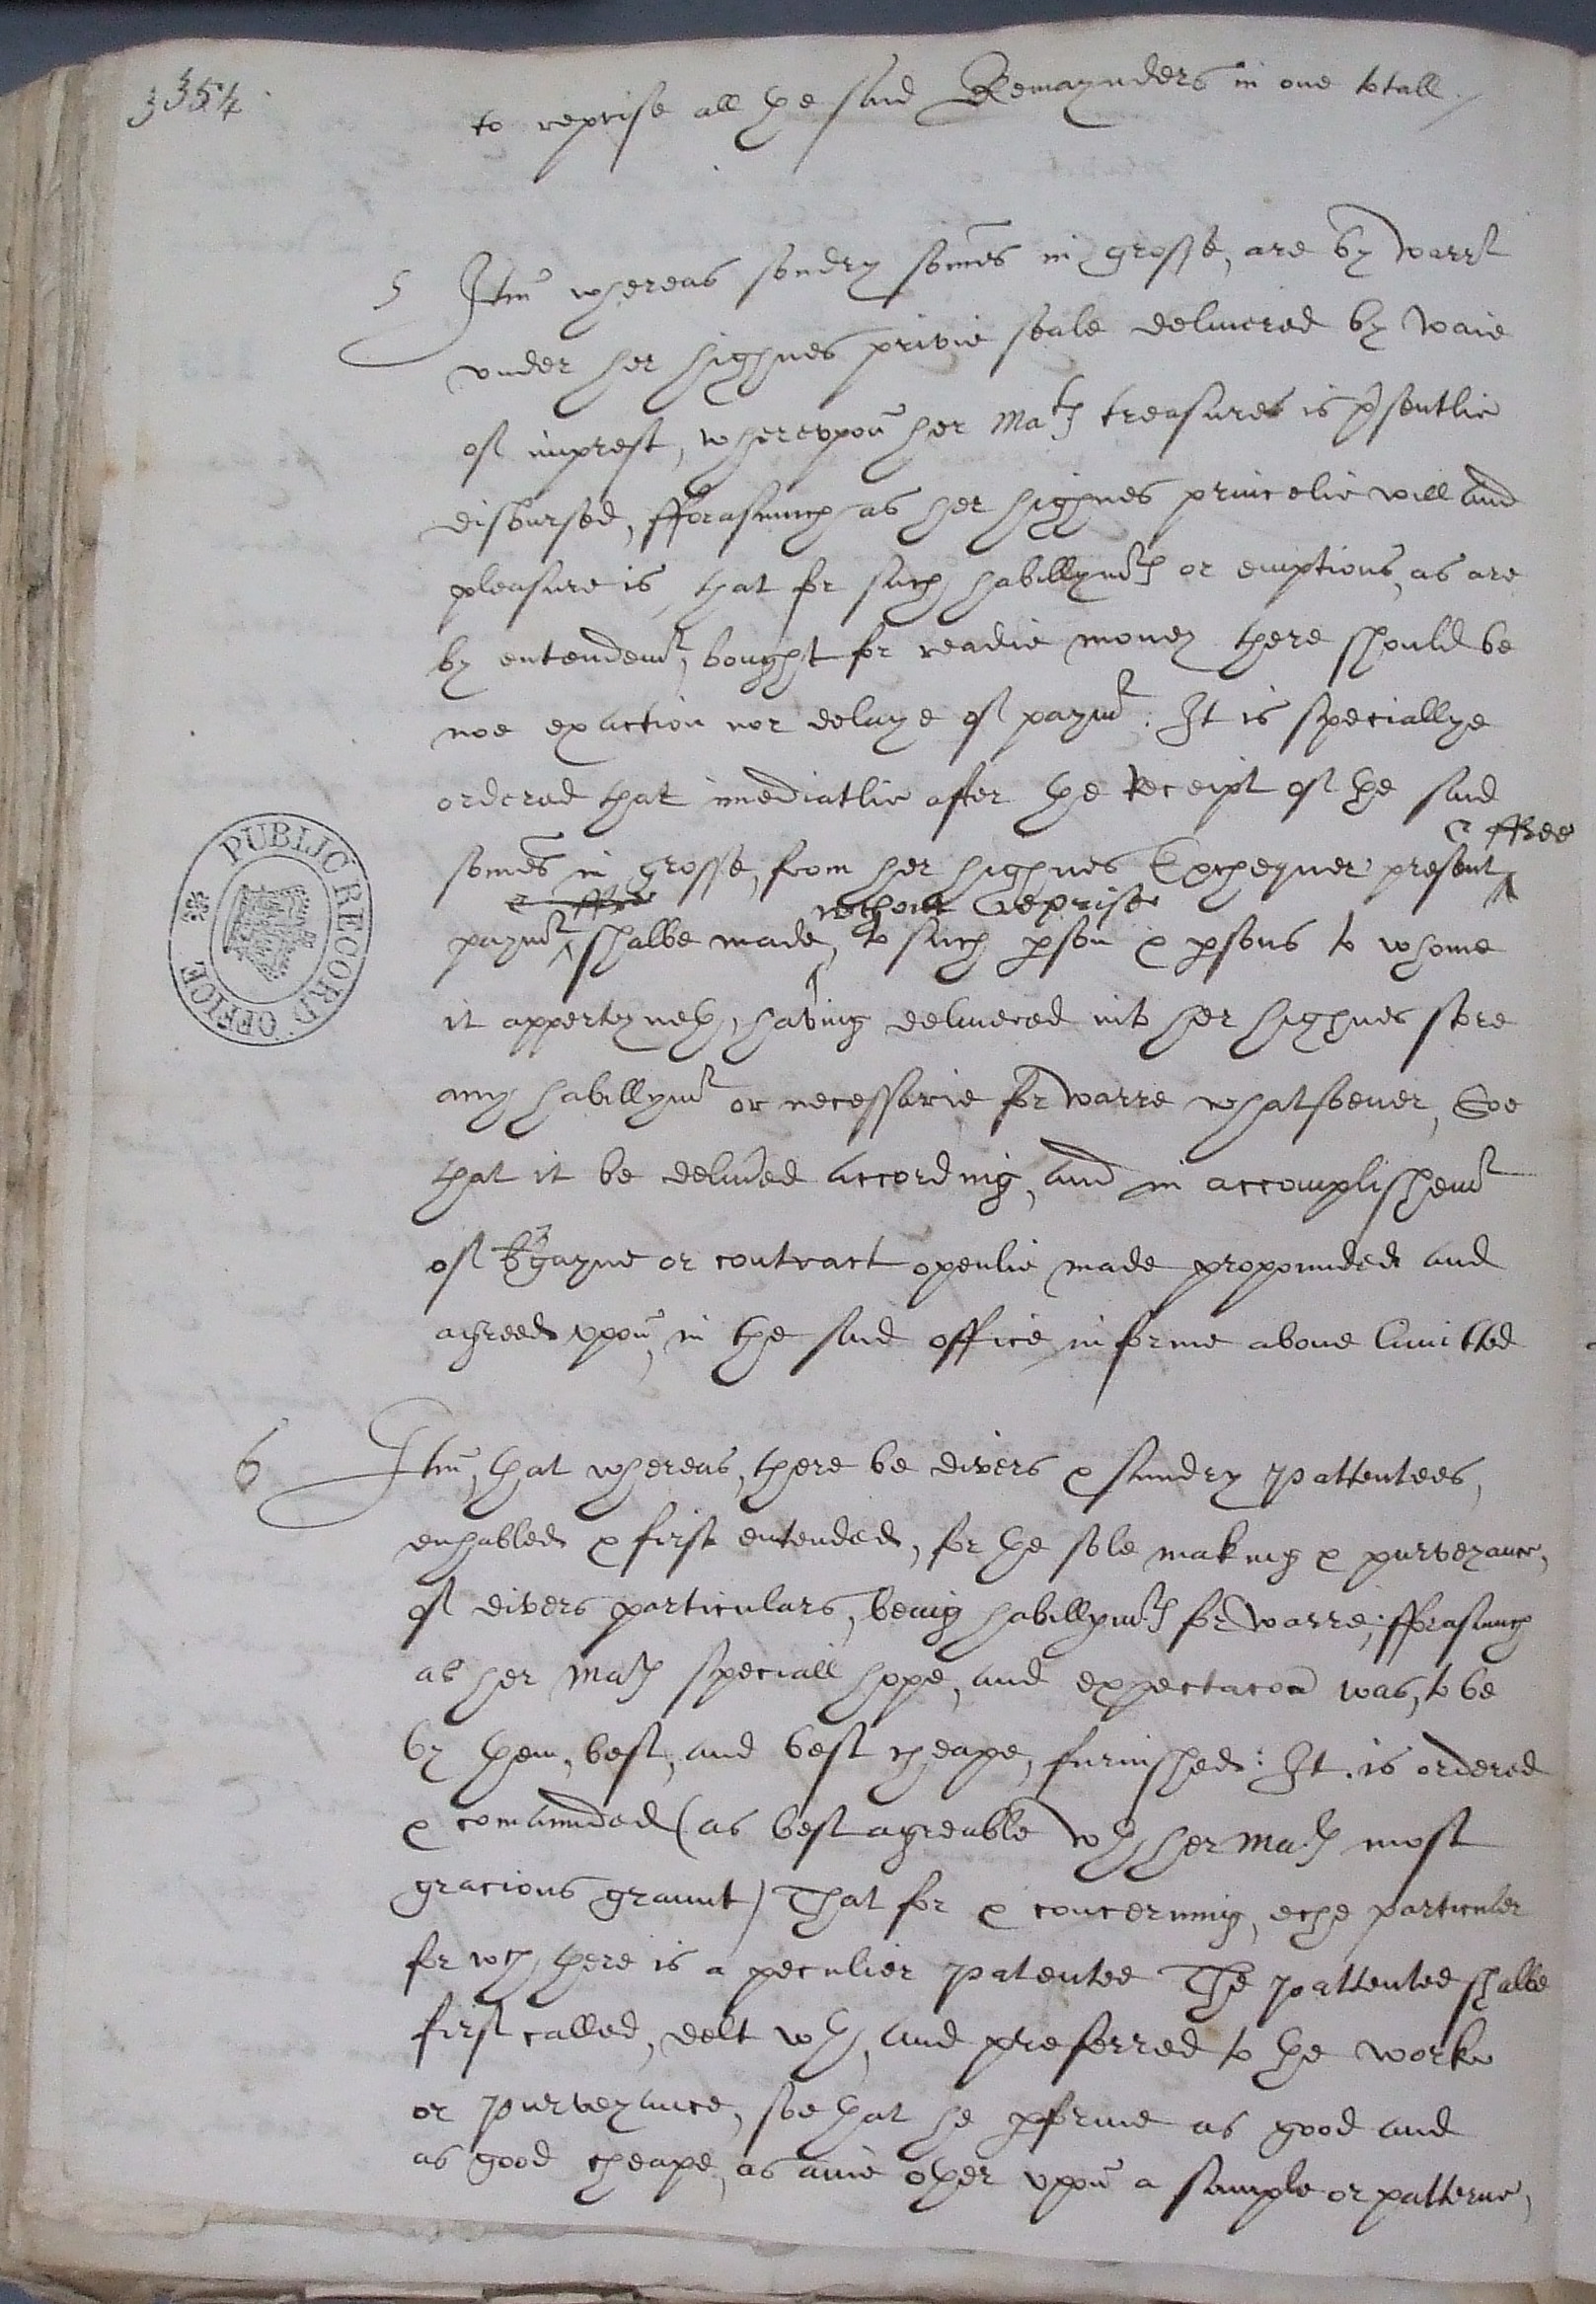 3354
to reprise all the said Remaynders in one totall.
5 Itm̃ whereas sondry som̃es in grosse, are by warrt
vnder her highnes privie seale deliuered by waie
of imprest, wherevpon̄ her Matys treasures is p̄sentlie
disbursed, fforasmuch as her highnes princelie will and
pleasure is, that for such habillymts or emptions, as are
by entendemt, bought for readie money there should be
noe exaction nor delaye of paymt. It is speciallye
ordered that im̄ediatlie after the Receipt of the said
& ffree
som̃es in grosse, from her highnes Exchequer present
& ffree without reprise
paymt shalbe made, to such pson & psons to whome
it apperteyneth, having deliuered into her highnes store
any habillymt or necessarie for warre whatsoeuer, Soe
that it be deliued according, and in accomplishemt
of b̄gayne or contract openlie made propounded and
agreed vpon̄, in the said office in forme aboue limitted
6 Itm̃, that whereas, there be divers & sundry Pattentees,
enhabled & first entended, for the sole making & purveyance,
of divers particulars, being habillymts for warre, fforasmuch
as her Matys speciall hope, and expectacon̄ was, to be
by them, best, and best cheape, furnished: It is ordered
& comaunded (as best agreable wth her Matys most
gracious graunt) That for & concerning, eche particuler
for wch there is a peculier Patentee The Pattentee shalbe
first called, delt wth, and preferred to the worke
or Purveyance, soe that he pforme as good and
as good cheape, as anie other vpon̄ a sample or patterne,
PUBLIC RECORD OFFICE